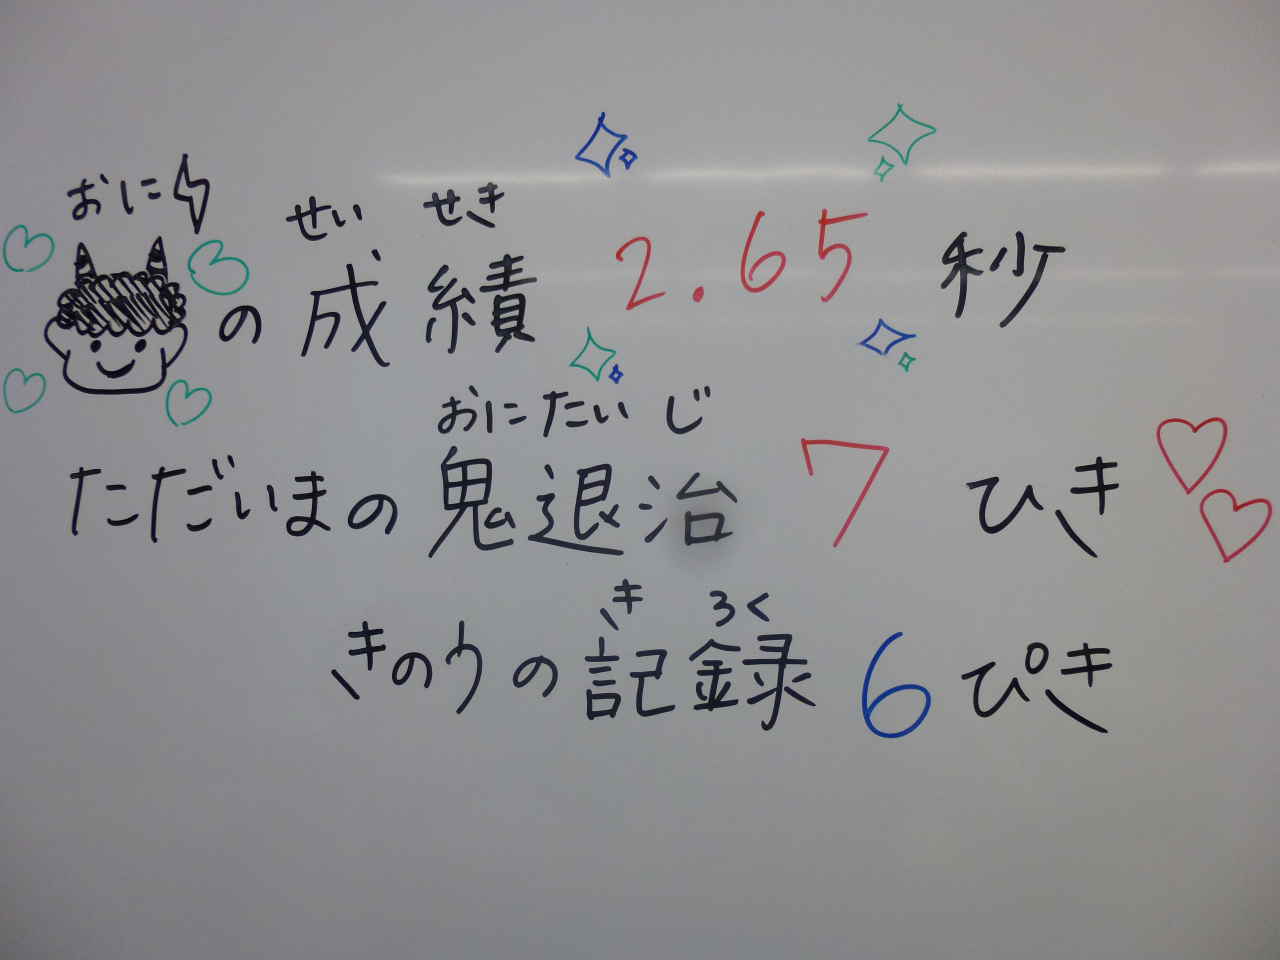 おに
せいせき
の成績 2.65 秒
おにたいじ
ただいまの鬼退治 7 ひき
きろく
きのうの記録 6 ぴき